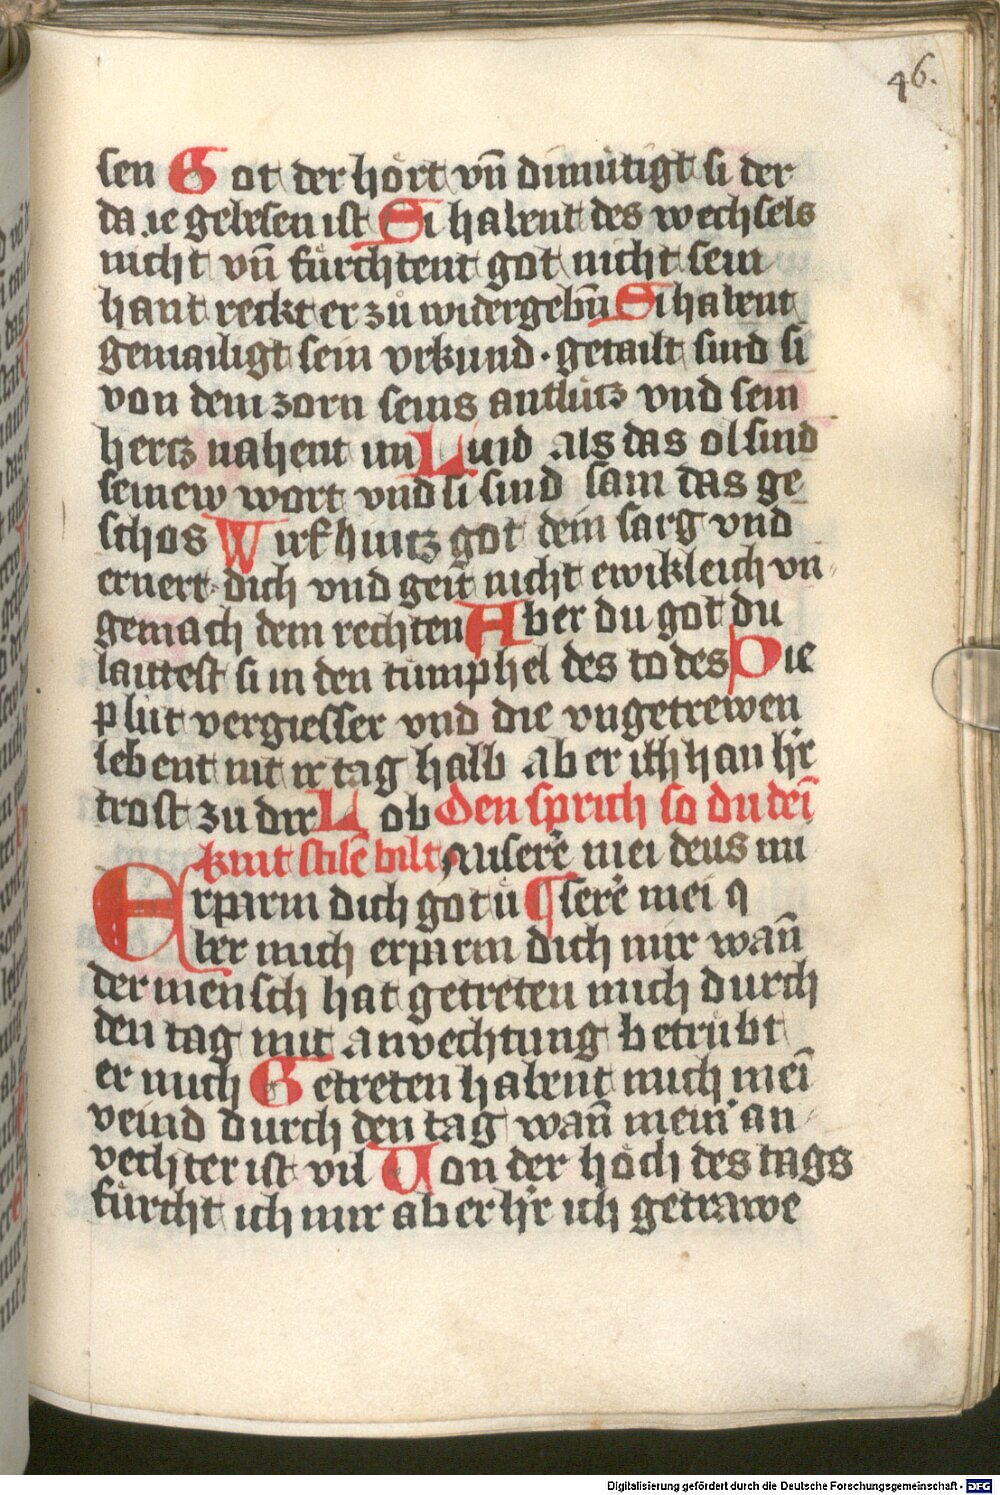 46.
sen Got der hört vn̄ dimütigt si der
da ie gelesen ist Si habent des wechsels
nicht vn̄ fürchtent got nicht sein
hant reckt er zů widergebn̄ Si habent
gemailigt sein vrkund · getailt sind si
von dem zorn seins antlütz vnd sein
hertz nahent im Lind als das ol sind
seinew wort vnd si sind sam das ge
schos Wirf hintz got dein sarg vnd
ernert dich vnd geit nicht ewikleich vn
gemach dem rechten Aber du got du
laittest si in den tümphel des todes Die
plůt vergiesser vnd die vngetrewen
lebent nit ir tag halb aber ich han hr̄
trost zu dir Lob Den sprich so du dei͂
kint stille wilt Misere͂ mei deus mi
Erparm dich got ů ¶ sere͂ mei q
ber mich erparm dich mir wan̄
der mensch hat getreten mich durch
den tag mit anvechtung betrübt
er mich Getreten habent mich mei͂
veind durch den tag wan̄ mein an
vechter ist vil Von der höch des tags
fürcht ich mir aber hr̄ ich getrawe
Digitalisierung gefördert durch die Deutsche Forschungsgemeinschaft - DFG